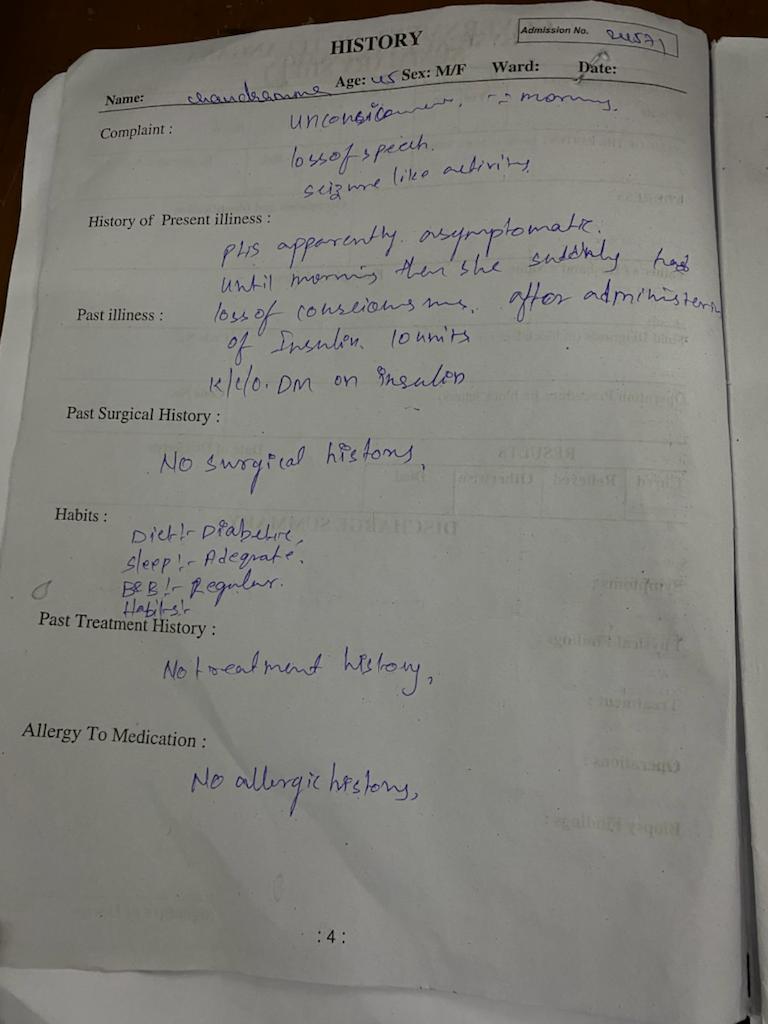 HISTORY
Admission No. 24571
Name: chandramma Age: 45 Sex: M/F Ward: Date:
Complaint : morning.
loss of speech.
seizure like activity
History of Present illness :
pt is apparently asymptomatic.
until morning then she suddenly had
Past illness : loss of consciousness, after administering
of Insulin 10 units
K/C/O. DM on insulin
Past Surgical History :
No surgical history,
Habits :
Diet:- Diabetic,
Sleep:- Adequate.
B&B:- Regular.
Habits:-
Past Treatment History :
No treatment history,
Allergy To Medication :
No allergic history,
: 4 :